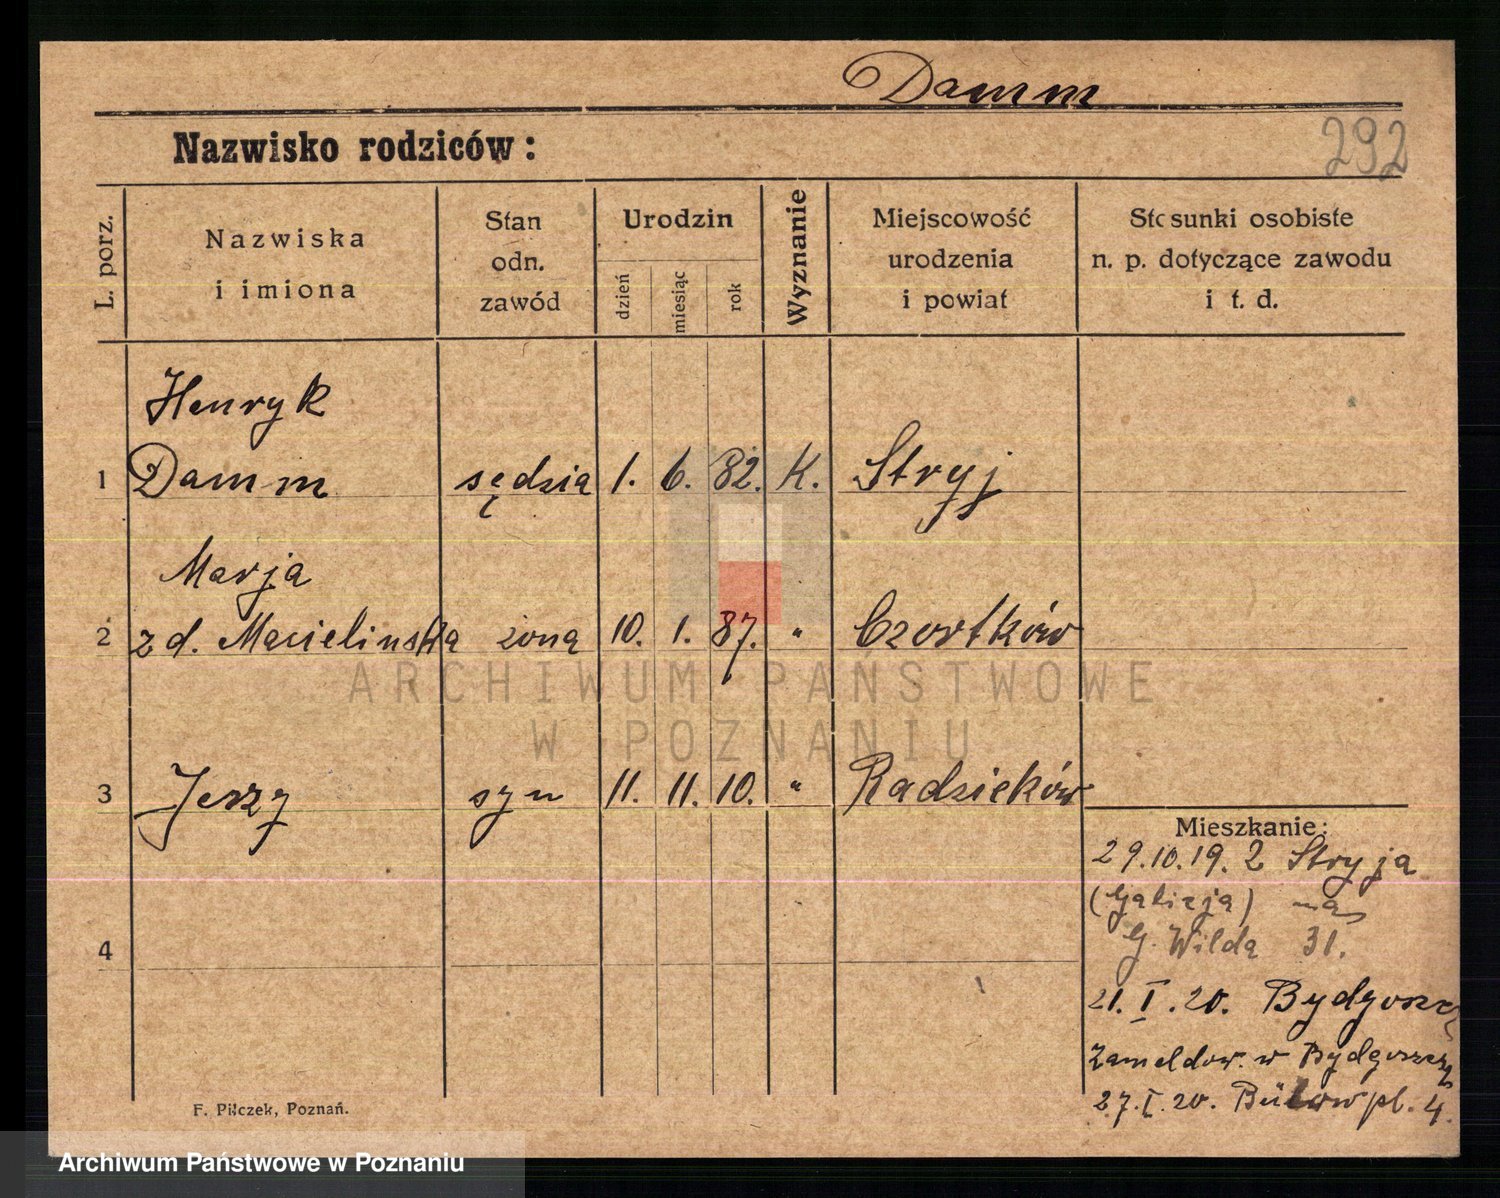 Damm
292
Nazwisko rodziców:
L. porz.
Nazwiska
i imiona
Stan
odn.
zawód
Urodzin
dzień
miesiąc
rok
Wyznanie
Miejscowość
urodzenia
i powiat
Stosunki osobiste
n. p. dotyczące zawodu
i t. d.
Henryk
1 Damm sędzia 1. 6. 82. K. Stryj
Marja
2 z d. Macielinska żona 10. 1. 87. " Czortków
ARCHIWUM PAŃSTWOWE
W POZNANIU
3 Jerzy syn 11. 11. 10. " Radzieków
Mieszkanie:
29.10.19. z Stryja
(Galicja)
G. Wilda 31.
4
21. I. 20. Bydgoszcz
Zameldow. w Bydgoszczy
27. I. 20. Bülowpl. 4.
F. Pilczek, Poznań.
Archiwum Państwowe w Poznaniu